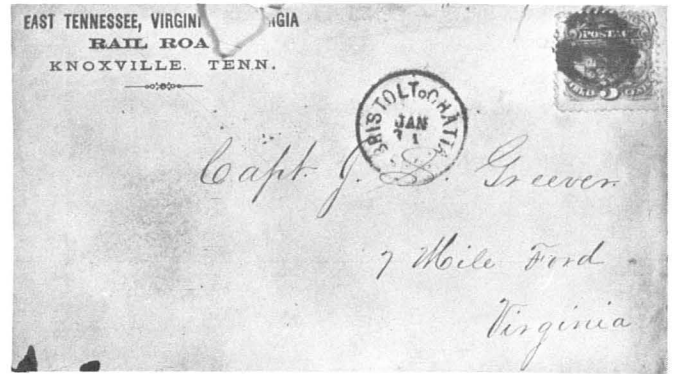 EAST TENNESSEE, VIRGINI GIA
RAIL ROA
KNOXVILLE. TENN.
POSTAGE
BRISTOL TO CHATTA
JAN
Capt. J. S. Greever.
7 Mile Ford
Virginia